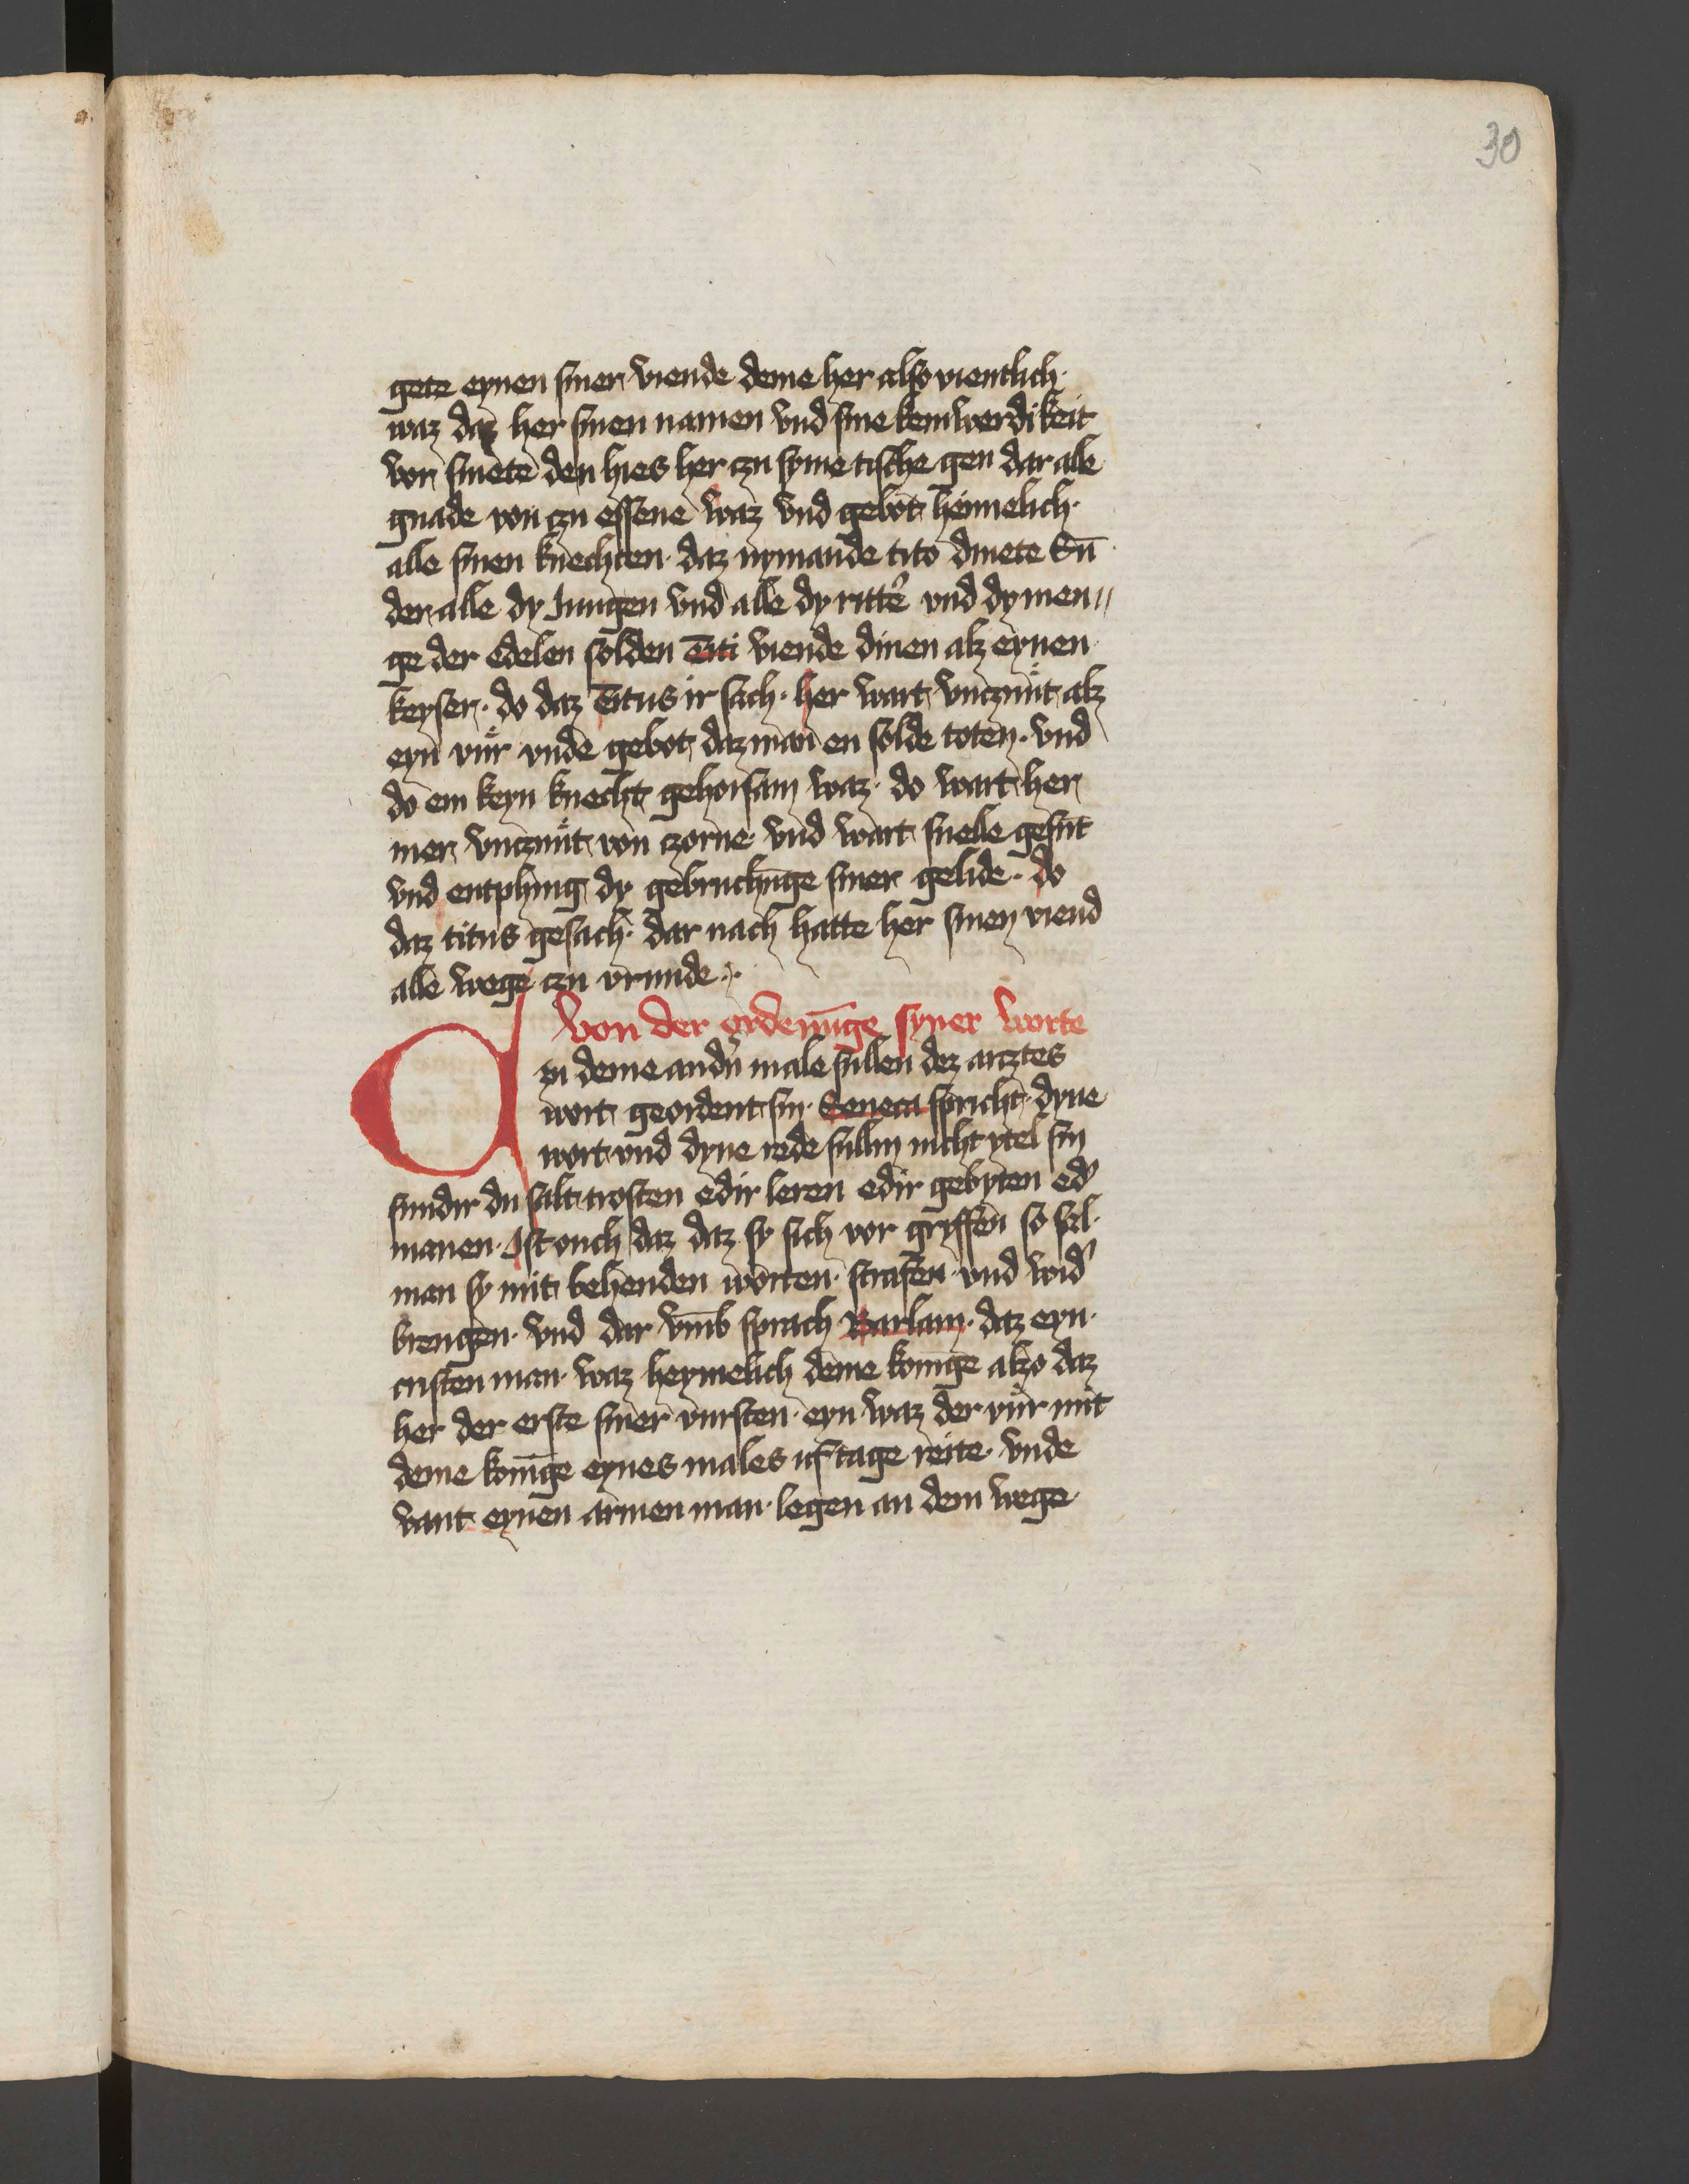 30
gete eynen siner viende deme her also vientlich·
waz daz her sinen namen vnd sine kenwerdikeit
vor smete den hies her czu syme tische gen dar alle
gnade von czu essene waz vnd gebot heimelich·
alle sinen knechten· daz nymande tito dinete Sun̄
der alle dy Jungen vnd alle dy ritter̉ vnd dy men〃
ge der edelen solden Titi viende dinen alz eynen
keyser· do daz Titus ir sach· her wart vnczunt alz
eyn vuͦr vnde gebot daz man en solde toten· vnd
do em keyn knecht gehorsam waz· do wart her
mer vnczunt von czorne vnd wart snelle gesunt
vnd entphing dy gebruchunge siner gelide· do
daz titus gesach· dar nach hatte her sinen viend
alle wege czu vrunde·
von der ordenūge syner worte
A n deme andn̉ male sullen dez arztes
wort geordent sin· Seneca spricht· dyne
wort vnd dyne rede sullin nicht ytel sin
sundir du salt trosten edir leren edir gebyten ed̉
manen· Ist ouch daz daz sy sich vor gryffen so sal·
man sy mit behenden worten· strafen· vnd wid̉
brengen· vnd dar vmb sprach Barlam· daz eyn·
cristen man· waz heymelich deme konīge alzo daz
her der erste siner vursten· eyn waz der vuͦr mit
deme konīge eynes males uf tage reite· vnde
vant eynen armen man· legen an dem wege·